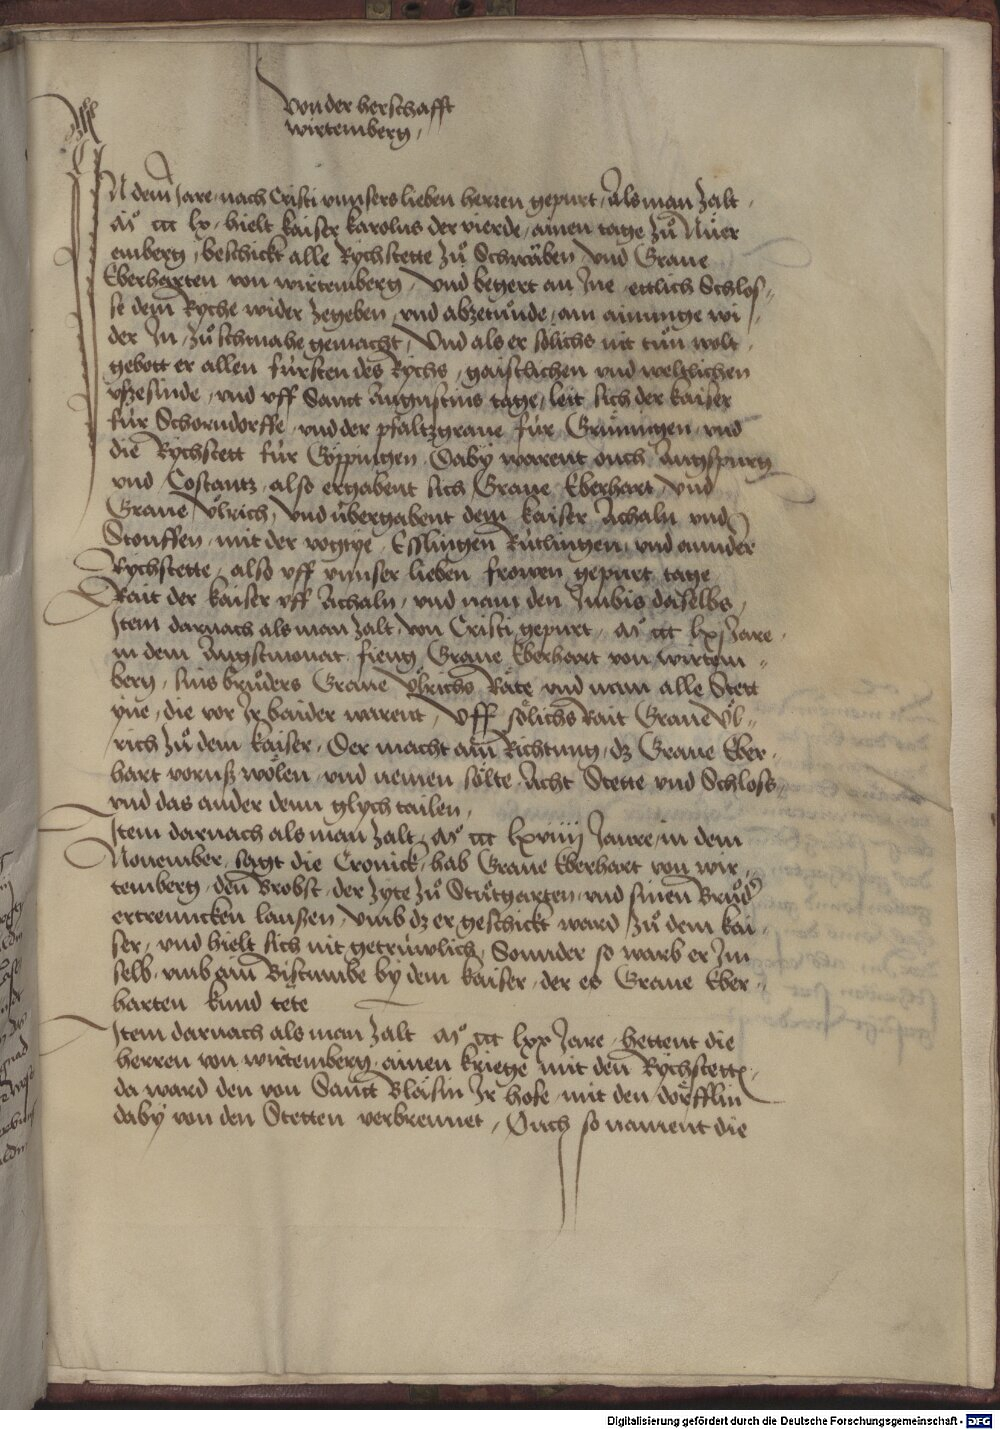 Von der herschafft
wirtemberg,
IN dem Jare, nach Cristi vnnsers lieben herren gepurt, Als man zalt,
Mº ccc lx, hielt kaiser karolus der vierde, ainen tage zů Nůer
emberg, beschickt alle Rÿchstette zů Schwäben vnd Graue
Eberharten von wirtemberg, vnd begert an Jne ettlich Schlos-
se dem Ryche wider zegeben, vnd abzetůnde, ain ainunge wi-
der In, zů schmahe gemacht, Vnd als er sölichs nit tůn wolt,
gebott er allen fürsten des Rychs, gaistlichen vnd weltlichen
vffzesinde, vnd vff Sanct Augustins tage, leit sich der kaiser
für Schorndorffe, vnd der pfaltzgraue für Grüningen, vnd
die Rÿchstett für Göppingen, Dabÿ warent ouch Augspurg
vnd Costantz, also ergabent sich Graue Eberhart, vnd
Graue Vlrich, vnd übergabent dem kaiser Achaln vnd
Stouffen, mit der vogtye, Esslingen Rütlingen, vnd annder
Rÿchstette, also vff vnnser lieben frowen gepurt tage
Rait der kaiser vff Achaln, vnd nam den Jmbis daselbs,
Item darnach als man zalt, von Cristi gepurt, Mº ccc lxj Jare,
in dem Augstmonat, fieng Graue Eberhart von wirtem-
berg, sins brůders Graue Vlrichs Räte, vnd nam alle Stett
yne, die vor Jr baider warent, Vff sölichs Rait Graue Vl-
rich zů dem kaiser, Der macht ain Richtung, dz Graue Eber-
hart voruß wölen, vnd nemen sölte, Acht Stette vnd Schloss,
vnd das ander denn glych tailen,
Item darnach als man zalt, Mº ccc lxviiij Jaure, in dem
Nouember, sagt die Cronick, hab Graue Eberhart von wir-
temberg, den Brobst, der zyte zů Stůtgarten, vnd sinen Brůder
ertrenncken laußen, Vmb dz er geschickt ward zů dem kai-
ser, vnd hielt sich nit getrüwlich, Sonnder so warb er Jm
selb, vmb ain Bistumbe by dem kaiser, der es Graue Eber-
harten kund tete
Item darnach als man zalt Mº ccc lxx Jare, hettent die
herren von wirtemberg, ainen kriege mit den Rÿchstette,
da ward den von Sanct Bläsin Jr hofe, mit den dörfflin
dabÿ von den Stetten verbrennet, Ouch so nament die
Digitalisierung gefördert durch die Deutsche Forschungsgemeinschaft - DFG